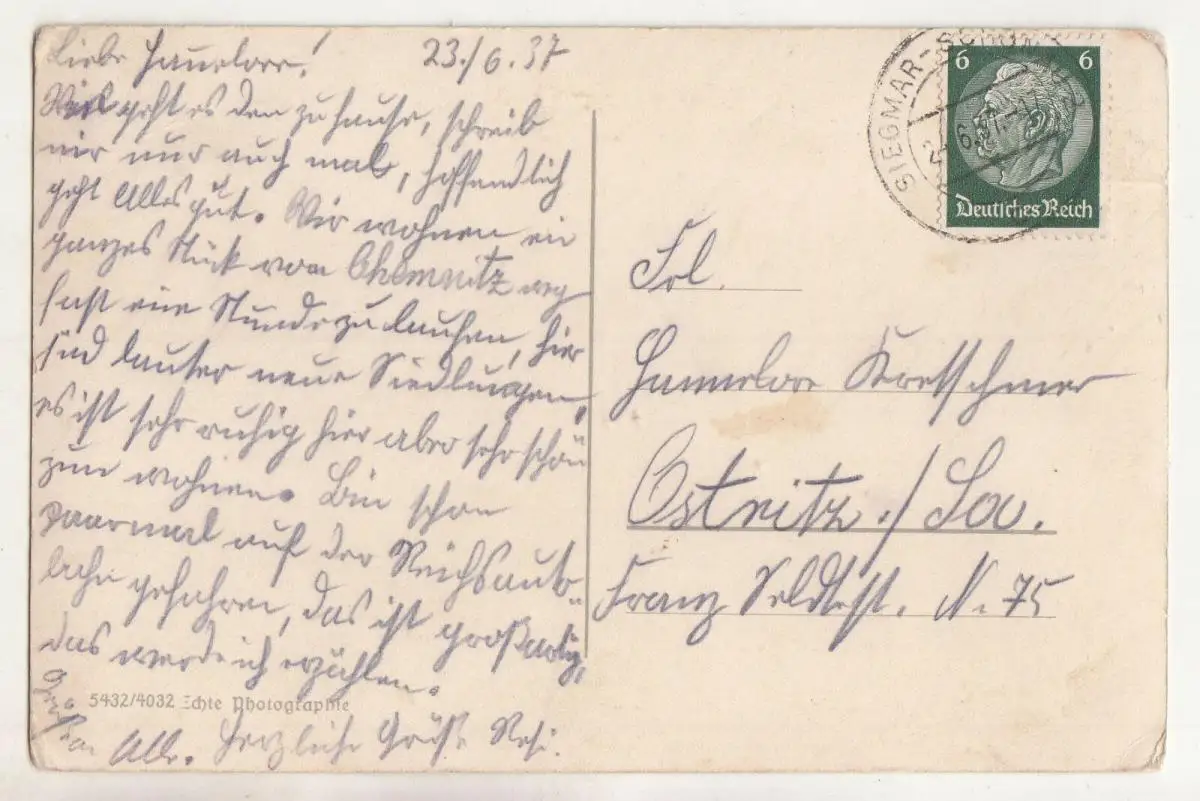 Liebe Hannelore! 23./6.37
Wie geht es den zu hause, schreib
mir nur auch mal, hoffendlich
geht Alles gut. Wir wohnen ein
ganzes Stück von Chemnitz weg
fast eine Stunde zu laufen, hier
sind lauter neue Siedlungen,
es ist sehr ruhig hier aber sehr schön
zum wohnen. Bin schon
paarmal auf der Reichsauto-
bahn gefahren, das ist großartig,
das werde ich erzählen.
5432/4032 Echte Photographie
Alle. Herzliche Grüße Resi.
SIEGMAR-SCHÖNAU
6 6
Deutsches Reich
Frl.
Hannelore Kretschmer
Ostritz./Sa.
Franz Seldtest. N. 75